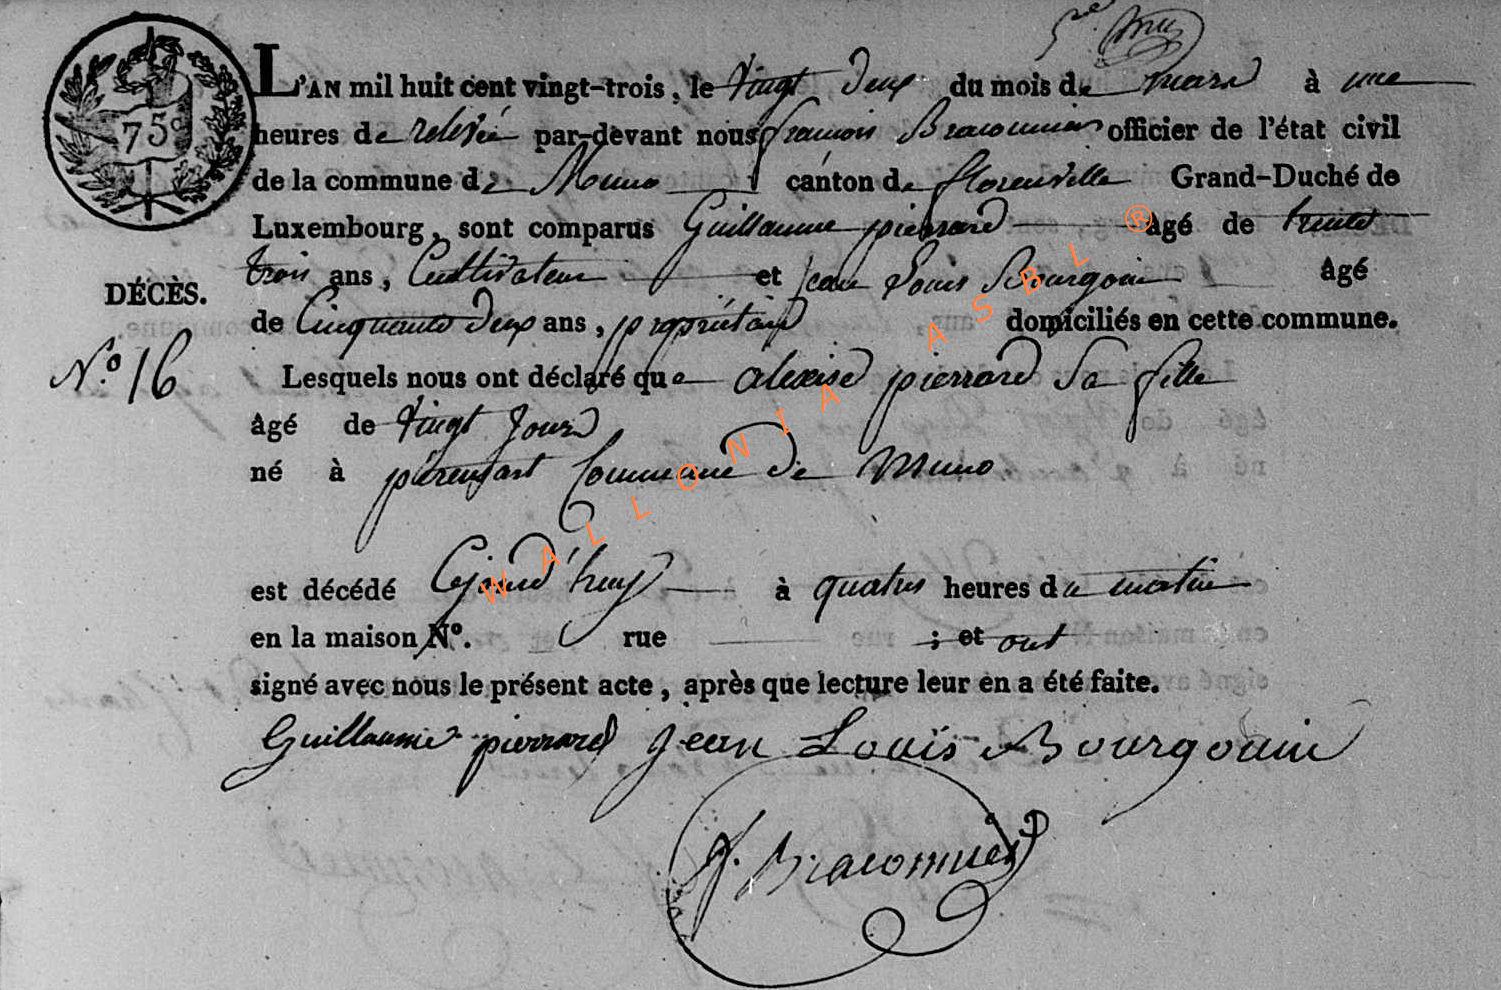 75c
L'AN mil huit cent vingt-trois, le vingt deux du mois de mars à une
heures de relevée par-devant nous françois Braconnier officier de l'état civil
de la commune de Muno canton de florenville Grand-Duché de
Luxembourg, sont comparus Guillaume pierrard âgé de trente
trois ans, Cultivateur et jean Louis Bourgoin âgé
DÉCÈS.
de Cinquante deux ans, propriétaire domiciliés en cette commune.
N.o 16
Lesquels nous ont déclaré que alexise pierrard Sa fille
âgé de vingt jours
né à Commune de Muno
est décédé Cejourd'huy à quatre heures du matin
en la maison No. rue ; et ont
signé avec nous le présent acte, après que lecture leur en a été faite.
Guillaume pierrard jean Louis Bourgouin
f. Braconnier
WALLONIA ASBL ®